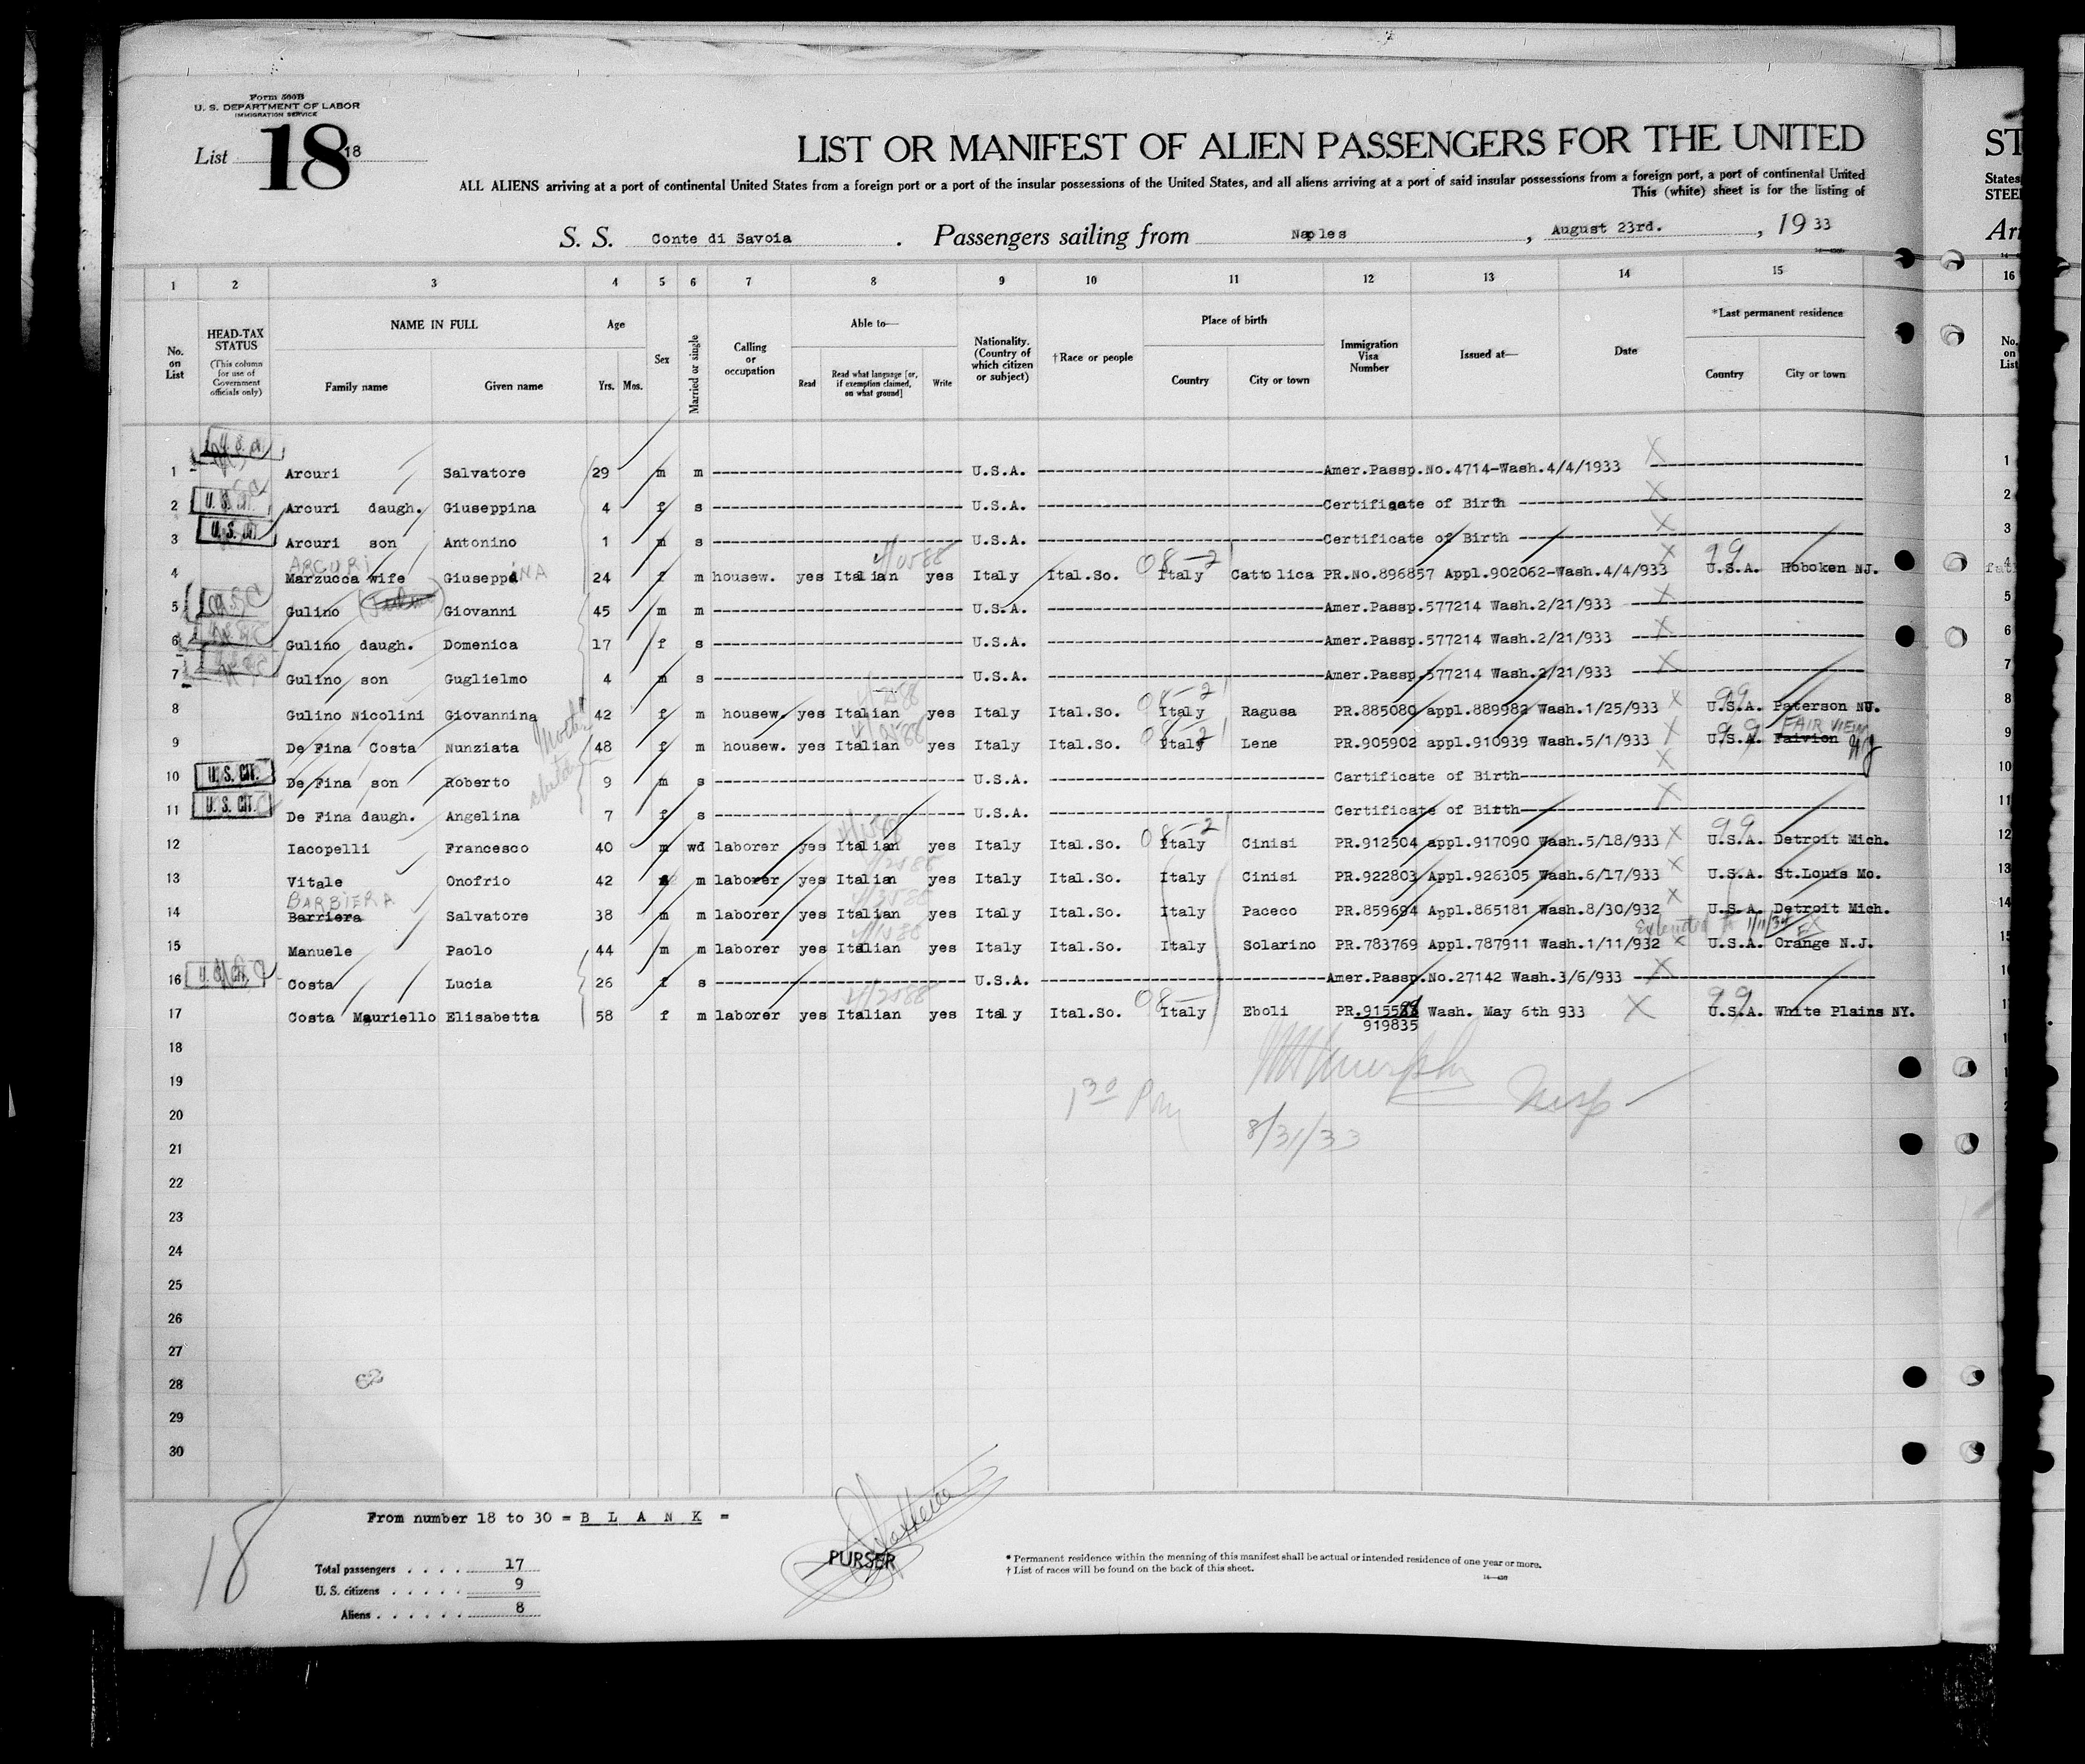 Form 500B
U. S. DEPARTMENT OF LABOR
IMMIGRATION SERVICE
List 18 18
LIST OR MANIFEST OF ALIEN PASSENGERS FOR THE UNITED
ST
ALL ALIENS arriving at a port of continental United States from a foreign port or a port of the insular possessions of the United States, and all aliens arriving at a port of said insular possessions from a foreign port, a port of continental United
States
This (white) sheet is for the listing of
STEE
S. S. Conte di Savoia . Passengers sailing from Naples , August 23rd. , 19 33
Arr
1 2 3 4 5 6 7 8 9 10 11 12 13 14 15 16
No. on List
HEAD-TAX STATUS
(This column for use of Government officials only)
NAME IN FULL
Family name Given name
Age
Yrs. Mos.
Sex
Married or single
Calling or occupation
Able to—
Read
Read what language [or, if exemption claimed, on what ground]
Write
Nationality. (Country of which citizen or subject)
†Race or people
Place of birth
Country City or town
Immigration Visa Number
Issued at—
Date
*Last permanent residence
Country City or town
No. on List
1 Arcuri Salvatore 29 m m U.S.A. Amer.Passp.No.4714-Wash.4/4/1933 X 1
2 U.S. CIT. Arcuri daugh. Giuseppina 4 f s U.S.A. Certificate of Birth X 2
3 U.S. CIT. Arcuri son Antonino 1 m s U.S.A. Certificate of Birth X 3
ARCURI
4 Marzucca wife Giuseppina 24 f m housew. yes Italian yes Italy Ital.So. Italy Cattolica PR.No.896857 Appl.902062-Wash.4/4/933 X U.S.A. Hoboken NJ. 4
5 Gulino Giovanni 45 m m U.S.A. Amer.Passp.577214 Wash.2/21/933 X 5
6 Gulino daugh. Domenica 17 f s U.S.A. Amer.Passp.577214 Wash.2/21/933 X 6
7 Gulino son Guglielmo 4 m s U.S.A. Amer.Passp.577214 Wash.2/21/933 X 7
8 Gulino Nicolini Giovannina 42 f m housew. yes Italian yes Italy Ital.So. Italy Ragusa PR.885080 appl.889982 Wash.1/25/933 X U.S.A. Paterson NJ. 8
FAIR VIEW
9 De Fina Costa Nunziata 48 f m housew. yes Italian yes Italy Ital.So. Italy Lene PR.905902 appl.910939 Wash.5/1/933 X U.S.A. Faivion NJ 9
10 U.S. CIT. De Fina son Roberto 9 m s U.S.A. Cartificate of Birth X 10
11 U.S. CIT. De Fina daugh. Angelina 7 f s U.S.A. Certificate of Birth X 11
12 Iacopelli Francesco 40 m wd laborer yes Italian yes Italy Ital.So. Italy Cinisi PR.912504 appl.917090 Wash.5/18/933 X U.S.A. Detroit Mich. 12
13 Vitale Onofrio 42 m laborer yes Italian yes Italy Ital.So. Italy Cinisi PR.922803 Appl.926305 Wash.6/17/933 X U.S.A. St.Louis Mo. 13
BARBIERA
14 Barriera Salvatore 38 m m laborer yes Italian yes Italy Ital.So. Italy Paceco PR.859694 Appl.865181 Wash.8/30/932 X U.S.A. Detroit Mich. 14
Extended to 1/11/34
15 Manuele Paolo 44 m m laborer yes Italian yes Italy Ital.So. Italy Solarino PR.783769 Appl.787911 Wash.1/11/932 X U.S.A. Orange N.J. 15
16 U.S. CIT. Costa Lucia 26 f s U.S.A. Amer.Passp.No.27142 Wash.3/6/933 X
17 Costa Mauriello Elisabetta 58 f m laborer yes Italian yes Italy Ital.So. Italy Eboli PR. Wash. May 6th 933 X U.S.A. White Plains NY.
919835
18
19
20
1 30 Pm
8/31/33
21
22
23
24
25
26
27
28
29
30
From number 18 to 30 = B L A N K =
18
Total passengers . . . . 17
U. S. citizens . . . . . 9
Aliens . . . . . . 8
PURSER
* Permanent residence within the meaning of this manifest shall be actual or intended residence of one year or more.
† List of races will be found on the back of this sheet.